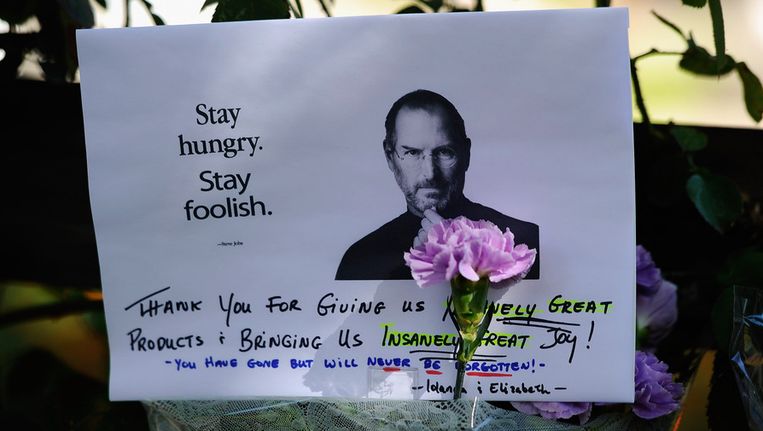 Stay
hungry.
Stay
foolish.
—Steve Jobs
THANK YOU FOR GIVING US GREAT
PRODUCTS & BRINGING US INSANELY GREAT JOY!
-YOU HAVE GONE BUT WILL NEVER BE FORGOTTEN!-
& ELIZABETH —